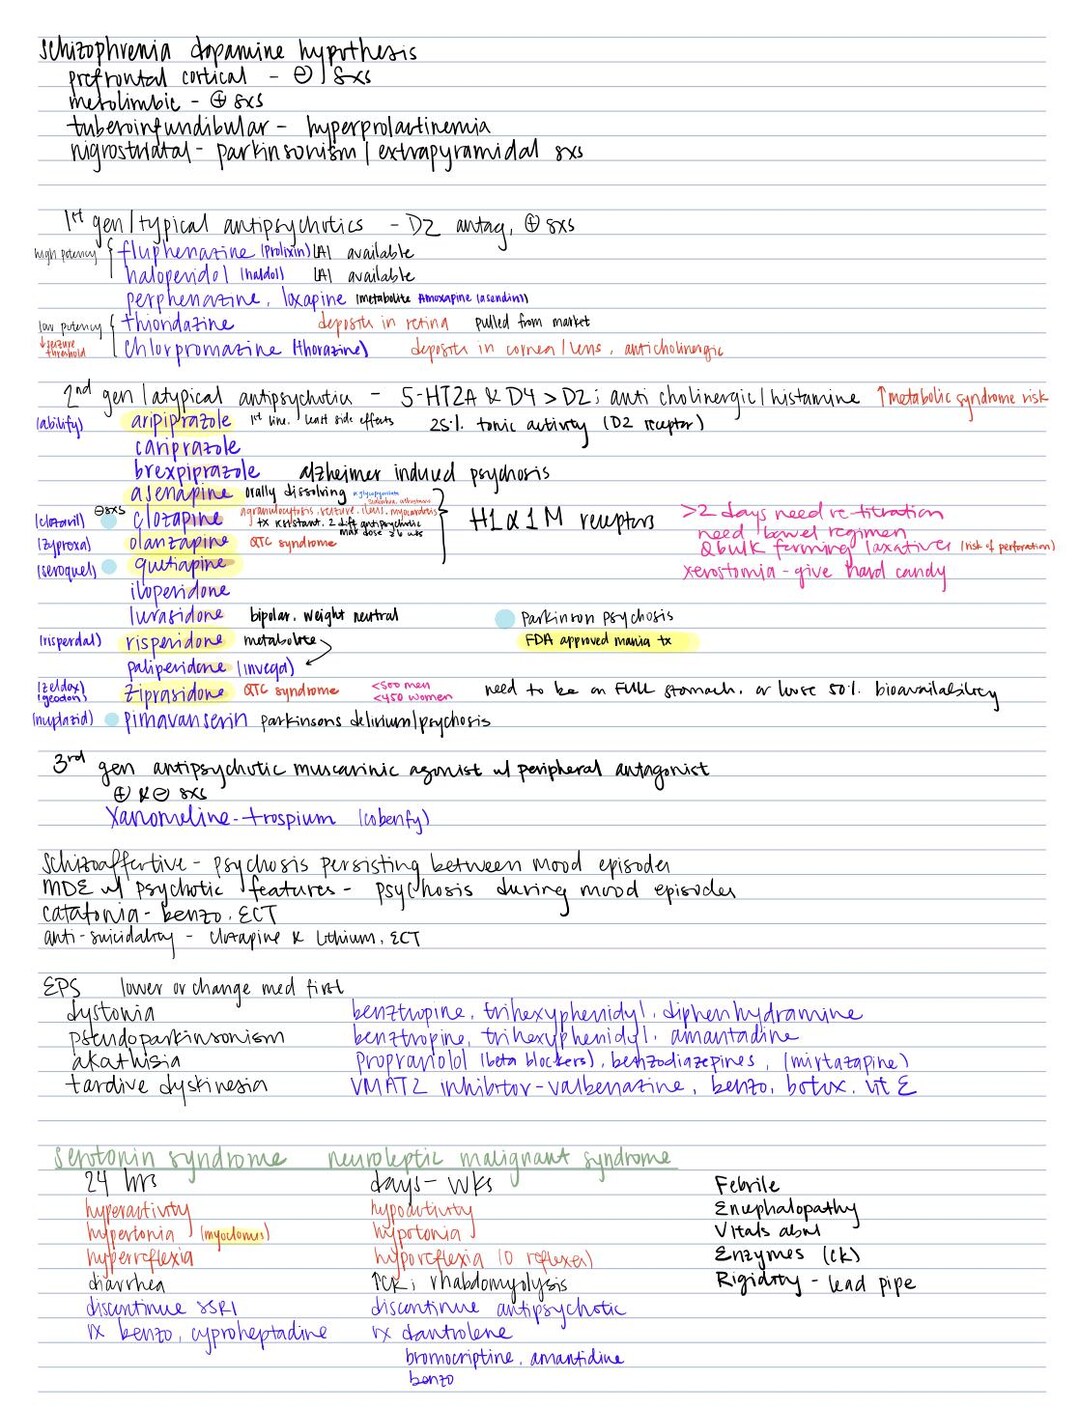 schizophrenia dopamine hypothesis
prefrontal cortical - ⊖ sxs
mesolimbic - ⊕ sxs
tuberoinfundibular - hyperprolactinemia
nigrostriatal - parkinsonism / extrapyramidal sxs
1st gen / typical antipsychotics - D2 antag, ⊕ sxs
high potency { fluphenazine (Prolixin) LAI available
haloperidol (haldol) LAI available
perphenazine, loxapine (metabolite Amoxapine (asendin))
low potency { thioridazine deposits in retina pulled from market
↓seizure threshold chlorpromazine (thorazine) deposits in cornea/lens, anticholinergic
2nd gen / atypical antipsychotics - 5-HT2A & D4 > D2; anti cholinergic/histamine ↑metabolic syndrome risk
(abilify) aripiprazole 1st line, least side effects 25% tonic activity (D2 receptor)
cariprazole
brexpiprazole alzheimer induced psychosis
asenapine orally dissolving
(clozaril) ⊖sxs clozapine agranulocytosis, seizure, ileus, myocarditis
tx resistant, 2 diff antipsychotic max dose ≥6 wks
} H1 α1 M receptors >2 days need re-titration
need bowel regimen
(zyprexa) olanzapine QTC syndrome
∅bulk forming laxatives (risk of perforation)
(seroquel) quetiapine xerostomia - give hard candy
iloperidone
lurasidone bipolar, weight neutral Parkinson psychosis
(risperdal) risperidone metabolite FDA approved mania tx
paliperidone (invega)
(zeldox) (geodon) ziprasidone QTC syndrome <500 men <450 women need to be on FULL stomach, or loose 50% bioavailability
(nuplazid) pimavanserin parkinsons delirium/psychosis
3rd gen antipsychotic muscarinic agonist w/ peripheral antagonist
⊕ & ⊖ sxs
xanomeline-trospium (cobenfy)
schizoaffective - psychosis persisting between mood episodes
MDE w/ psychotic features - psychosis during mood episodes
catatonia - benzo, ECT
anti-suicidality - clozapine & Lithium, ECT
EPS lower or change med first
dystonia benztropine, trihexyphenidyl, diphenhydramine
pseudoparkinsonism benztropine, trihexyphenidyl, amantadine
akathisia propranolol (beta blockers), benzodiazepines, (mirtazapine)
tardive dyskinesia VMAT2 inhibitor-valbenazine, benzo, botox, vit E
serotonin syndrome neuroleptic malignant syndrome
24 hrs days-wks Febrile
hyperactivity hypoactivity Encephalopathy
hypertonia (myoclonus) hypotonia Vitals abnl
hyperreflexia hyporeflexia (0 reflexes) Enzymes (CK)
diarrhea ↑CK; rhabdomyolysis Rigidity - lead pipe
discontinue SSRI discontinue antipsychotic
rx benzo, cyproheptadine rx dantrolene
bromocriptine, amantidine
benzo